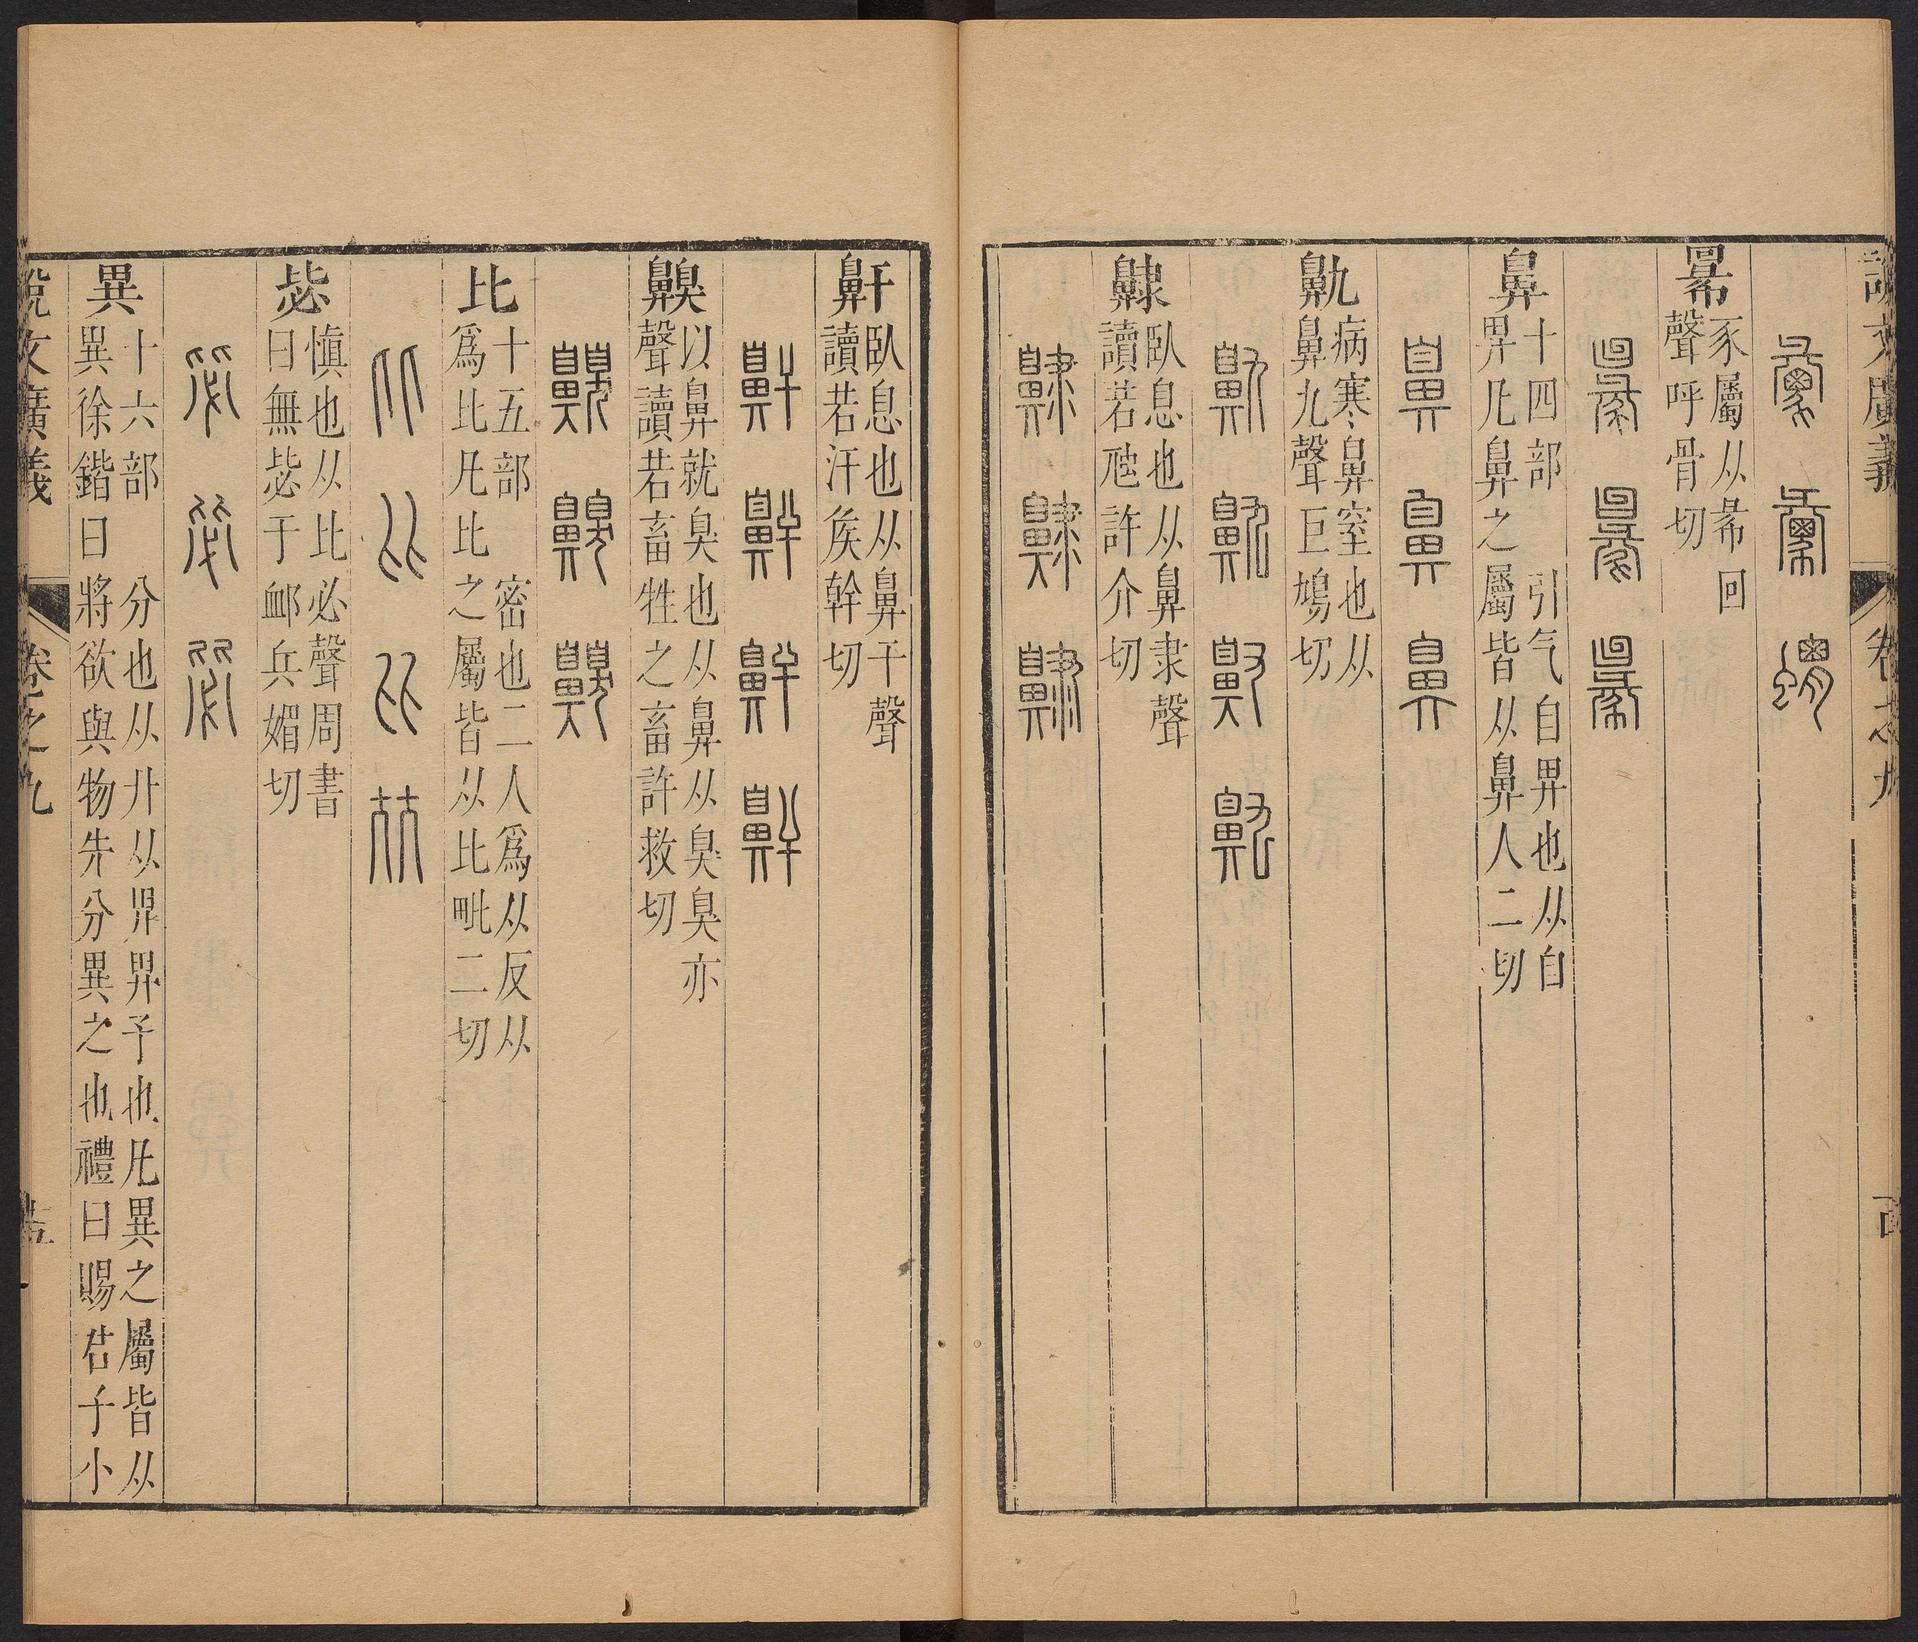 說文廣義 卷之九 十四
𢑥
豕屬从㣇回
聲呼骨切
鼻
十四部 引气自畀也从自
畀凡鼻之屬皆从鼻人二切
鼽
病寒鼻窒也从
鼻九聲巨鳩切
𪖪
臥息也从鼻隶聲
讀若虺許介切
鼾
臥息也从鼻干聲
讀若汗矦幹切
齅
以鼻就臭也从鼻从臭臭亦
聲讀若畜牲之畜許救切
比
十五部 密也二人爲从反从
爲比凡比之屬皆从比毗二切
毖
愼也从比必聲周書
曰無毖于卹兵媚切
異
十六部 分也从廾从畀畀予也凡異之屬皆从
異徐鍇曰將欲與物先分異之也禮曰賜君子小
說文廣義 卷之九 十五